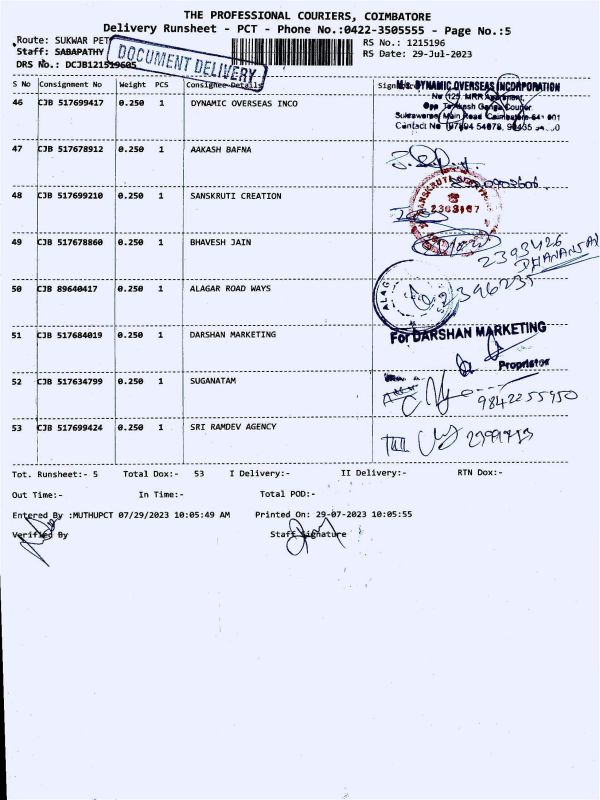 THE PROFESSIONAL COURIERS, COIMBATORE
Delivery Runsheet - PCT - Phone No.:0422-3505555 - Page No.:5
Route: SUKWAR PET
RS No.: 1215196
Staff: SABAPATHY
RS Date: 29-Jul-2023
DRS No.: DCJB121519605
DOCUMENT DELIVERY
S No Consignment No Weight PCS Consignee Details
46 CJB 517699417 0.250 1 DYNAMIC OVERSEAS INCO
M/s. DYNAMIC OVERSEAS INCORPORATION
47 CJB 517678912 0.250 1 AAKASH BAFNA
48 CJB 517699210 0.250 1 SANSKRUTI CREATION
49 CJB 517678860 0.250 1 BHAVESH JAIN
2393426
50 CJB 89640417 0.250 1 ALAGAR ROAD WAYS
ALAG
51 CJB 517684019 0.250 1 DARSHAN MARKETING
For DARSHAN MARKETING
Proprietor
52 CJB 517634799 0.250 1 SUGANATAM
53 CJB 517699424 0.250 1 SRI RAMDEV AGENCY
Tot. Runsheet:- 5 Total Dox:- 53 I Delivery:- II Delivery:- RTN Dox:-
Out Time:- In Time:- Total POD:-
Entered By :MUTHUPCT 07/29/2023 10:05:49 AM Printed On: 29-07-2023 10:05:55
Verified By Staff Signature